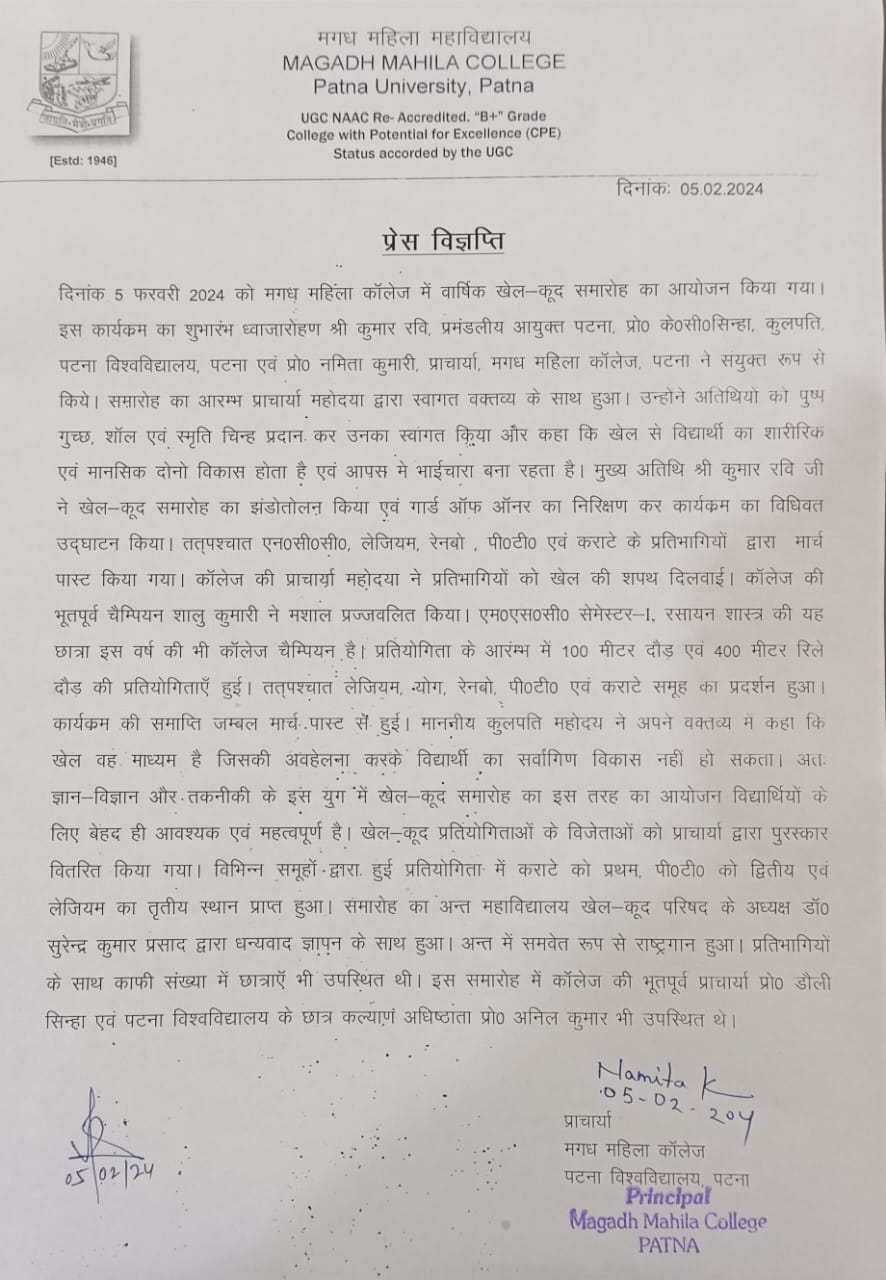 मगध महिला महाविद्यालय
MAGADH MAHILA COLLEGE
Patna University, Patna
UGC NAAC Re- Accredited. "B+" Grade
College with Potential for Excellence (CPE)
Status accorded by the UGC
[Estd: 1946]
दिनांकः 05.02.2024
प्रेस विज्ञप्ति
दिनांक 5 फरवरी 2024 को मगध महिला कॉलेज में वार्षिक खेल–कूद समारोह का आयोजन किया गया।
इस कार्यक्रम का शुभारंभ ध्वाजारोहण श्री कुमार रवि, प्रमंडलीय आयुक्त पटना, प्रो० के०सी०सिन्हा, कुलपति,
पटना विश्वविद्यालय, पटना एवं प्रो० नमिता कुमारी, प्राचार्या, मगध महिला कॉलेज, पटना ने संयुक्त रूप से
किये। समारोह का आरम्भ प्राचार्या महोदया द्वारा स्वागत वक्तव्य के साथ हुआ। उन्होंने अतिथियों को पुष्प
गुच्छ, शॉल एवं स्मृति चिन्ह प्रदान कर उनका स्वागत किया और कहा कि खेल से विद्यार्थी का शारीरिक
एवं मानसिक दोनो विकास होता है एवं आपस मे भाईचारा बना रहता है। मुख्य अतिथि श्री कुमार रवि जी
ने खेल–कूद समारोह का झंडोतोलन किया एवं गार्ड ऑफ ऑनर का निरिक्षण कर कार्यक्रम का विधिवत
उद्घाटन किया। तत्पश्चात एन०सी०सी०, लेजियम, रेनबो , पी०टी० एवं कराटे के प्रतिभागियों द्वारा मार्च
पास्ट किया गया। कॉलेज की प्राचार्या महोदया ने प्रतिभागियों को खेल की शपथ दिलवाई। कॉलेज की
भूतपूर्व चैम्पियन शालु कुमारी ने मशाल प्रज्जवलित किया। एम०एस०सी० सेमेस्टर–I, रसायन शास्त्र की यह
छात्रा इस वर्ष की भी कॉलेज चैम्पियन है। प्रतियोगिता के आरंभ में 100 मीटर दौड़ एवं 400 मीटर रिले
दौड़ की प्रतियोगिताएँ हुई। तत्पश्चात लेजियम, योग, रेनबो, पी०टी० एवं कराटे समूह का प्रदर्शन हुआ।
कार्यक्रम की समाप्ति जम्बल मार्च पास्ट से हुई। माननीय कुलपति महोदय ने अपने वक्तव्य में कहा कि
खेल वह माध्यम है जिसकी अवहेलना करके विद्यार्थी का सर्वागिण विकास नहीं हो सकता। अतः
ज्ञान–विज्ञान और तकनीकी के इस युग में खेल–कूद समारोह का इस तरह का आयोजन विद्यार्थियों के
लिए बेहद ही आवश्यक एवं महत्वपूर्ण है। खेल–कूद प्रतियोगिताओं के विजेताओं को प्राचार्या द्वारा पुरस्कार
वितरित किया गया। विभिन्न समूहों द्वारा हुई प्रतियोगिता में कराटे को प्रथम, पी०टी० को द्वितीय एवं
लेजियम का तृतीय स्थान प्राप्त हुआ। समारोह का अन्त महाविद्यालय खेल–कूद परिषद के अध्यक्ष डॉ०
सुरेन्द्र कुमार प्रसाद द्वारा धन्यवाद ज्ञापन के साथ हुआ। अन्त में समवेत रूप से राष्ट्रगान हुआ। प्रतिभागियों
के साथ काफी संख्या में छात्राएँ भी उपस्थित थी। इस समारोह में कॉलेज की भूतपूर्व प्राचार्या प्रो० डौली
सिन्हा एवं पटना विश्वविद्यालय के छात्र कल्याण अधिष्ठाता प्रो० अनिल कुमार भी उपस्थित थे।
Namita K
05-02-204
05/02/24
प्राचार्या
मगध महिला कॉलेज
पटना विश्वविद्यालय, पटना
Principal
Magadh Mahila College
PATNA